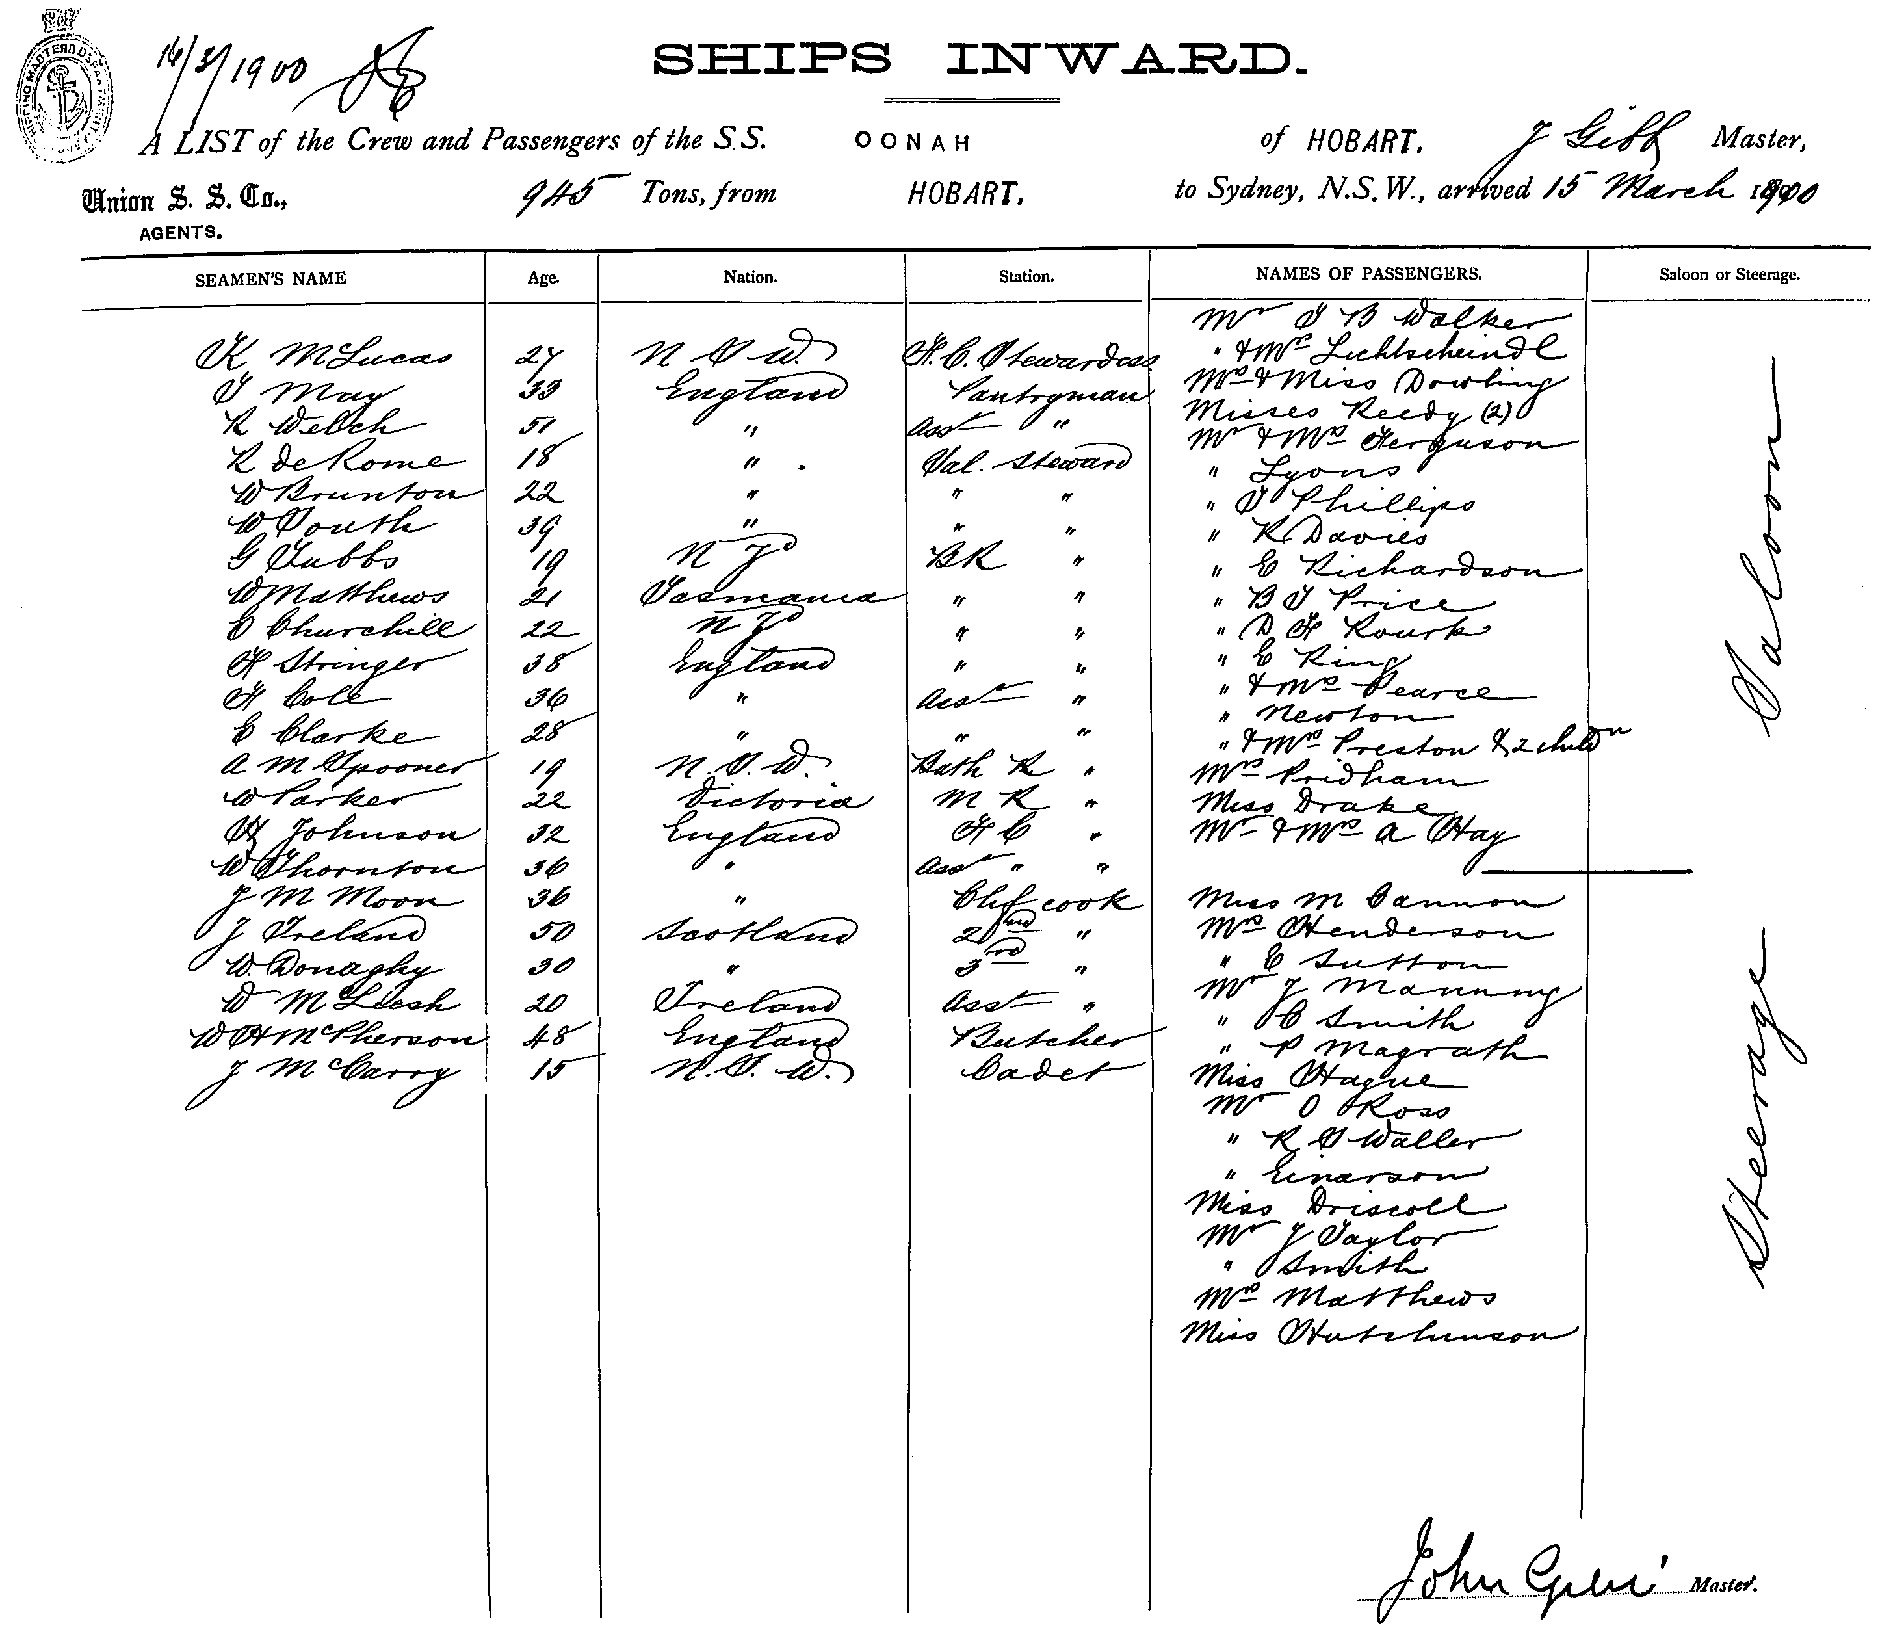 16/3/1900
SHIPS INWARD.
A LIST of the Crew and Passengers of the S.S. OONAH of HOBART. J Gibb Master,
Union S. S. Co., 945 Tons, from HOBART. to Sydney, N.S.W., arrived 15 March 1900
AGENTS.
SEAMEN'S NAME Age. Nation. Station. NAMES OF PASSENGERS. Saloon or Steerage.
K McLucas 27 N S W. F.C. Stewardess
T May 33 England Pantryman
R Welch 51 " Asst "
R de Rome 18 " Sal. Steward
W Brunton 22 " " "
W South 39 " " "
G Tubbs 19 N Zd BR "
W Matthews 21 Tasmania " "
C Churchill 22 N Zd " "
H Stringer 38 England " "
H Cole 36 " Asst "
C Clarke 28 " " "
A M Spooner 19 N.S.W. Bath R "
W Parker 22 Victoria M R "
H Johnson 32 England F C "
W Thornton 36 " Asst " "
J M Moon 36 " Chf cook
J Ireland 50 Scotland 2nd "
W. Donaghy 30 " 3rd "
W McLeesh 20 Ireland Asst "
W H McPherson 48 England Butcher
J McCarry 15 N.S.W. Cadet
Mr T B Walker
" & Mrs Lichtscheindl
Mrs & Miss Dowling
Misses Reedy (2)
Mr & Mrs Ferguson
" Lyons
" T Phillips
" R Davies
" E Richardson
" B T Price
" D H Rourk
" E King
" & Mrs Pearce
" Newton
" & Mrs Preston & 2 childn
Mrs Pridham
Miss Drake
Mr & Mrs A Hay
Saloon
Miss M Cannon
Mrs Henderson
" E Sutton
Mr J Manning
" C Smith
" P Magrath
Miss Hague
Mr O Ross
" R S Waller
" Einarson
Miss Driscoll
Mr J Taylor
" Smith
Mrs Matthews
Miss Hutchinson
Steerage
John Gibb Master.